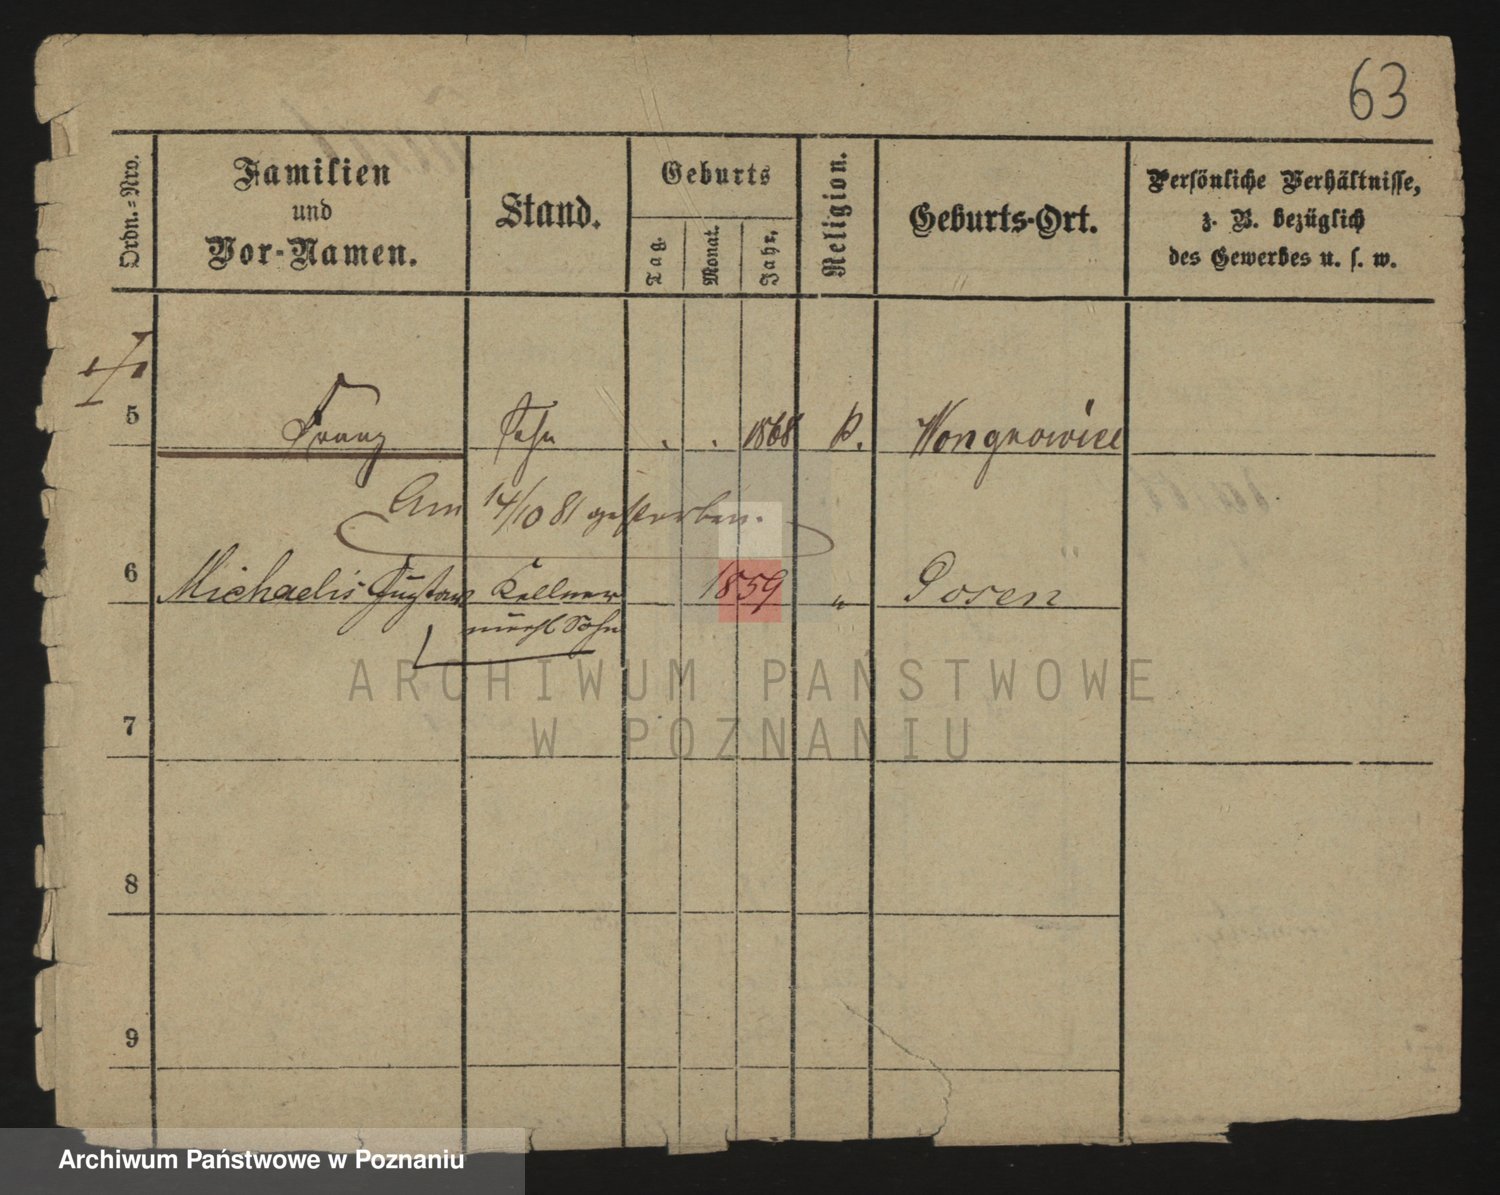 63
Ordn.-Nro.
Familien
und
Vor-Namen.
Stand.
Geburts
Tag.
Monat.
Jahr.
Religion.
Geburts-Ort.
Persönliche Verhältnisse,
z. B. bezüglich
des Gewerbes u. s. w.
5 Franz Sohn . . 1868 Wongrowiec
Am 14/10 81 gestorben.
6 Michaelis Gustav Kellner 1859 " Posen
unehl Sohn
7
8
9
ARCHIWUM PAŃSTWOWE
W POZNANIU
Archiwum Państwowe w Poznaniu